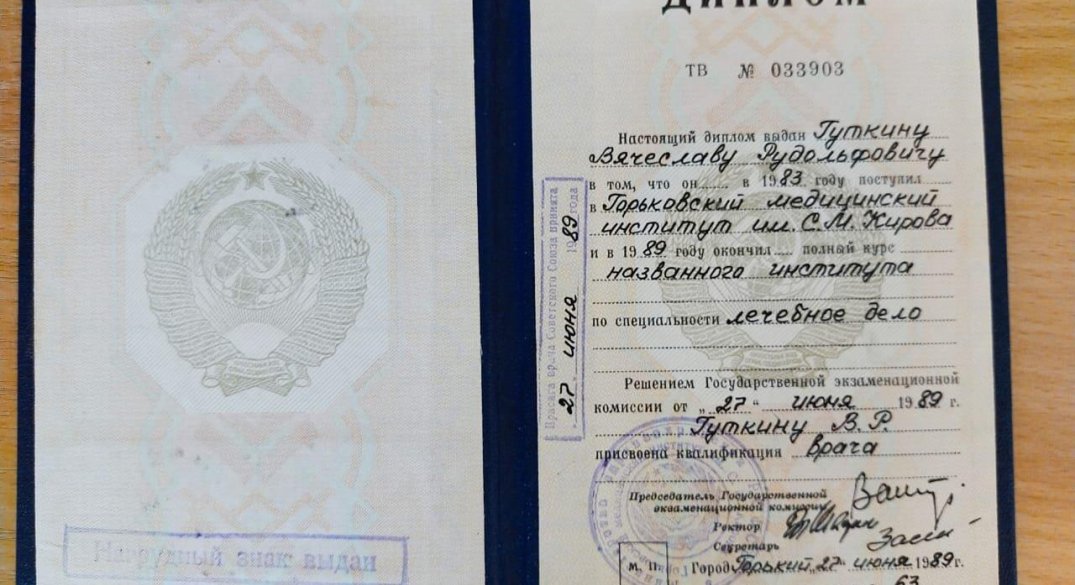 Нагрудный знак выдан
ДИПЛОМ
ТВ № 033903
Настоящий диплом выдан Гуткину
Вячеславу Рудольфовичу
в том, что он в 1983 году поступил
в Горьковский медицинский
институт им. С.М. Кирова
и в 1989 году окончил полный курс
названного института
по специальности лечебное дело
Решением Государственной экзаменационной
комиссии от „27“ июня 1989 г.
Гуткину В. Р.
присвоена квалификация врача
Председатель Государственной
экзаменационной комиссии
Ректор
Секретарь
М. П. Город Горький „27“ июня 1989 г.
63
Присяга врача Советского Союза принята
27 июня 1989 года